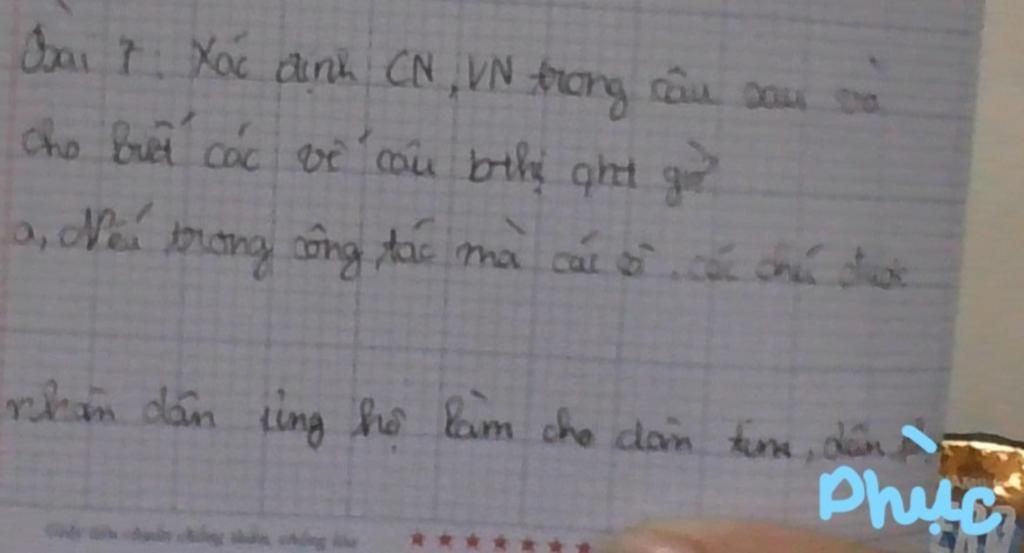 Bài 7: Xác định CN, VN trong câu sau và
cho biết các vế câu b thị qht gì?
a, Nếu trong công tác mà các cô, các chú được
nhân dân ủng hộ làm cho dân tin, dân
Phục
★★★★★★★